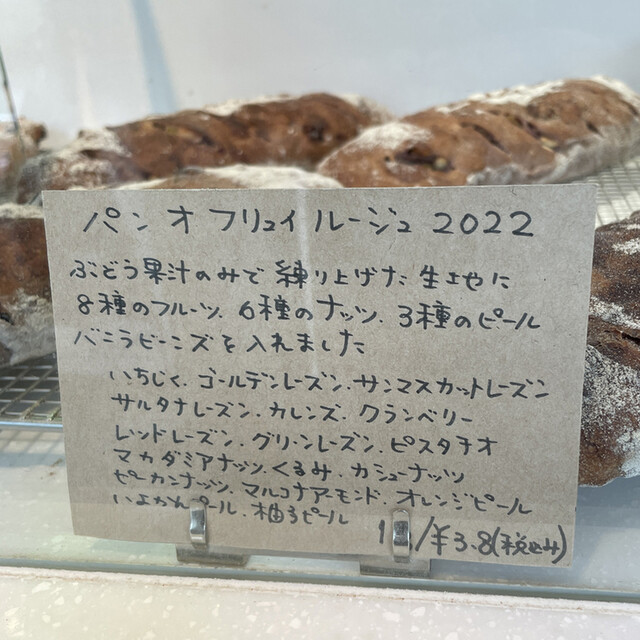 パン オ フリュイ ルージュ 2022
ぶどう果汁のみで 練り上げた 生地に
8種のフルーツ、6種のナッツ、3種のピール
バニラビーンズを入れました
いちじく、ゴールデンレーズン、サンマスカットレーズン
サルタナレーズン、カレンズ、クランベリー
レッドレーズン、グリーンレーズン、ピスタチオ
マカダミアナッツ、くるみ、カシューナッツ
ピーカンナッツ、マルコナアーモンド、オレンジピール
いよかんピール、柚子ピール
/¥3.8(税込み)